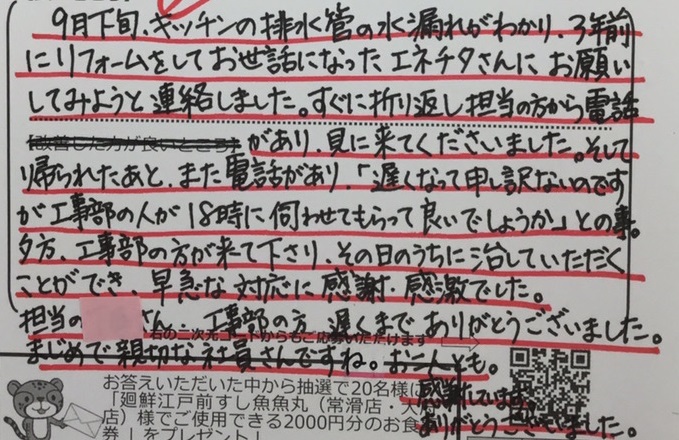 9月下旬、キッチンの排水管の水漏れがわかり、3年前
にリフォームをしてお世話になったエネチタさんにお願い
してみようと連絡しました。すぐに折り返し担当の方から電話
【改善した方が良いところ】
があり、見に来てくださいました。そして
帰られたあと、また電話があり、「遅くなって申し訳ないのです
が工事部の人が18時に伺わせてもらって良いでしょうか」との事。
夕方、工事部の方が来て下さり、その日のうちに治していただく
ことができ、早急な対応に感謝・感激でした。
担当の さん、工事部の方、遅くまでありがとうございました。
右の二次元コードからもご応募いただけます
まじめで親切な社員さんですね。お二人とも。
感謝しています。
ありがとうございました。
お答えいただいた中から抽選で20名様に
「廻鮮江戸前すし魚魚丸（常滑店・大
店）様でご使用できる2000円分のお食
券」をプレゼント！